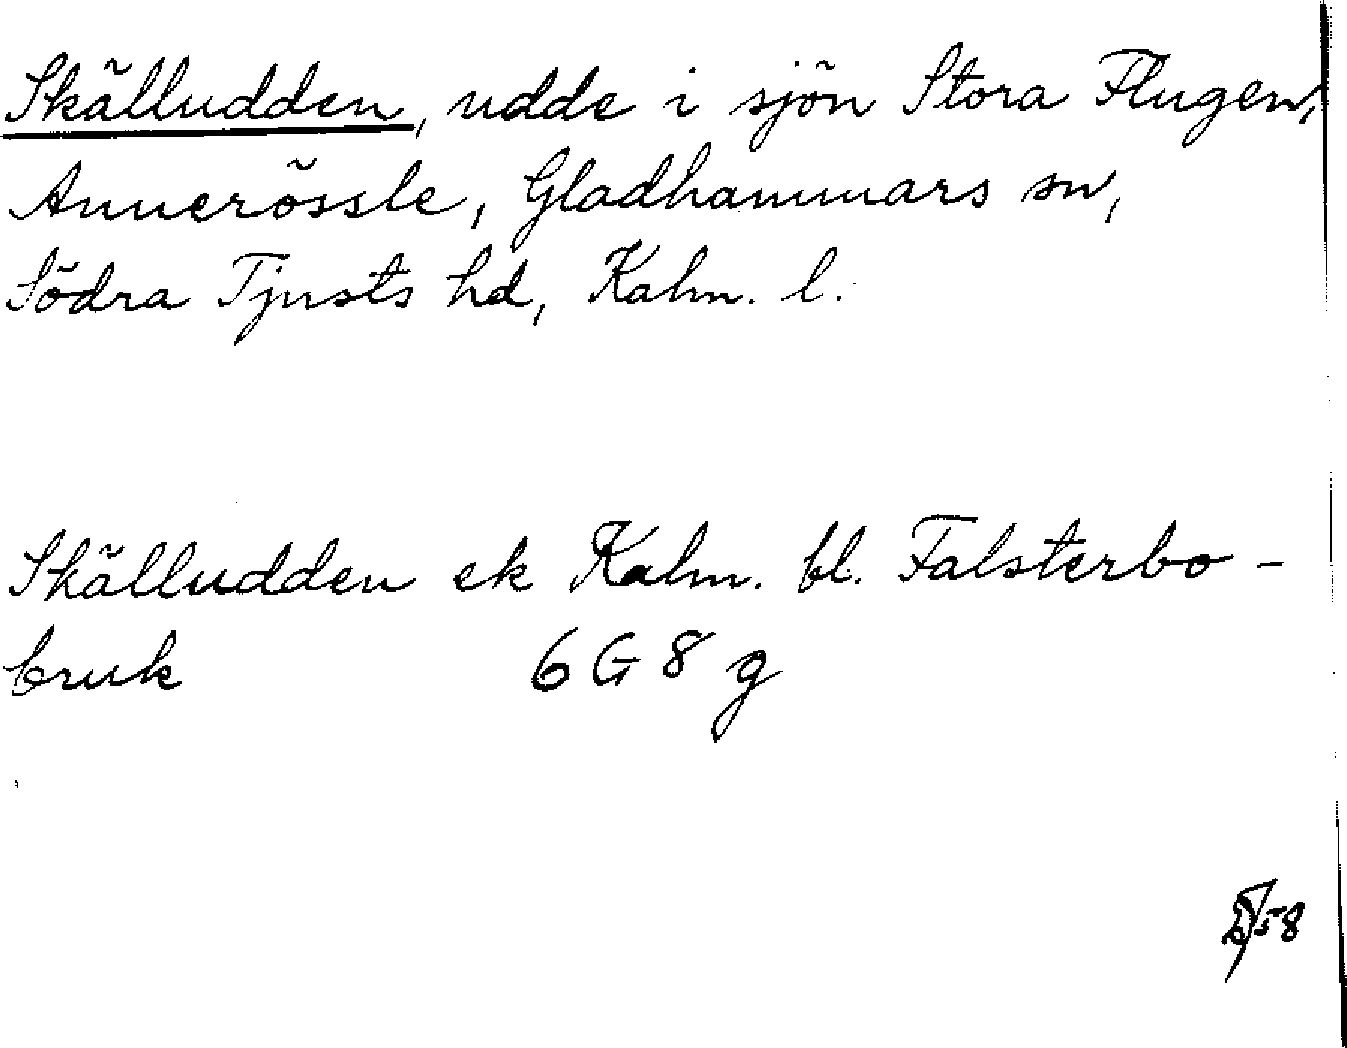 Skälludden, udde i sjön Stora Flugen,
Annerössle, Gladhammars sn,
Södra Tjusts hd, Kalm. l.
Skälludden ek Kalm. bl. Falsterbo-
bruk 6 G 8 g
58